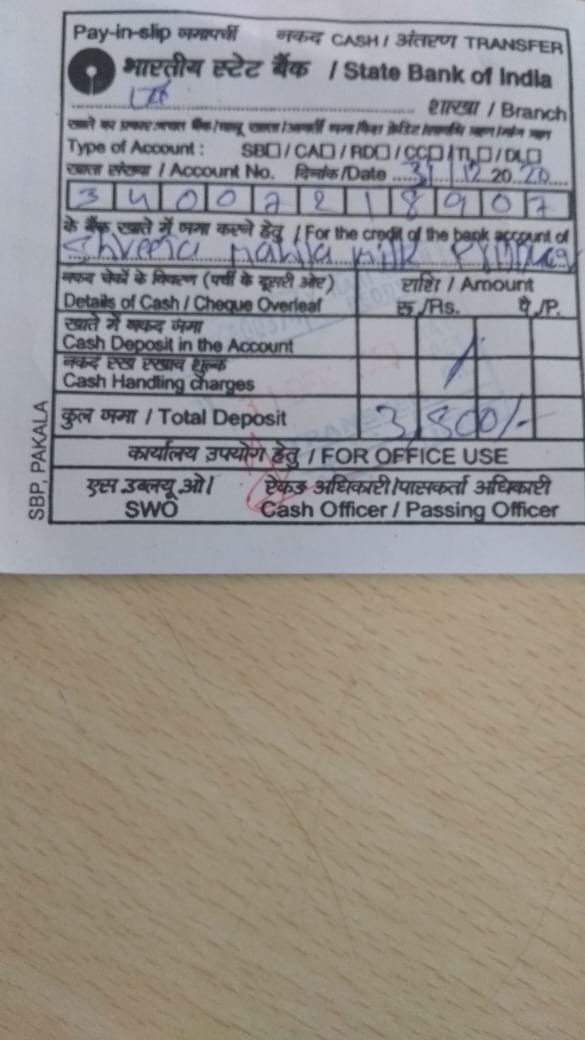 Pay-in-slip जमापर्ची नकद CASH / अंतरण TRANSFER
भारतीय स्टेट बैंक / State Bank of India
शाखा / Branch
Type of Account : SB□ / CA□ / RD□ / CC□ / TL□ / DL□
खाता संख्या / Account No. दिनांक /Date 31 12 20 20
3 4 0 0 7 2 1 8 9 0 7
के बैंक खाते में जमा करने हेतु / For the credit of the bank account of
milk
नकद चेकों के विवरण (पर्ची के दूसरी ओर) राशि / Amount
Details of Cash / Cheque Overleaf रू /Rs. पै /P.
खाते में नकद जमा
Cash Deposit in the Account
नकद रख रखाव शुल्क
Cash Handling charges
कुल जमा / Total Deposit 3,800/-
कार्यालय उपयोग हेतु / FOR OFFICE USE
एस डब्लयू ओ। ऐकड अधिकारी/पासकर्ता अधिकारी
SWO Cash Officer / Passing Officer
SBP, PAKALA